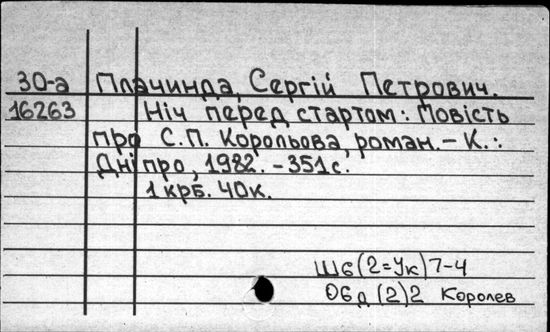 30-а Плачинда, Сергій Петрович.
16263 Ніч перед стартом: Повість
про С.П. Корольова, роман. – К.:
Дніпро, 1982. – 351с.
1 крб. 40к.
Ш6(2=Ук)7-4
О6д(2)2 Королев